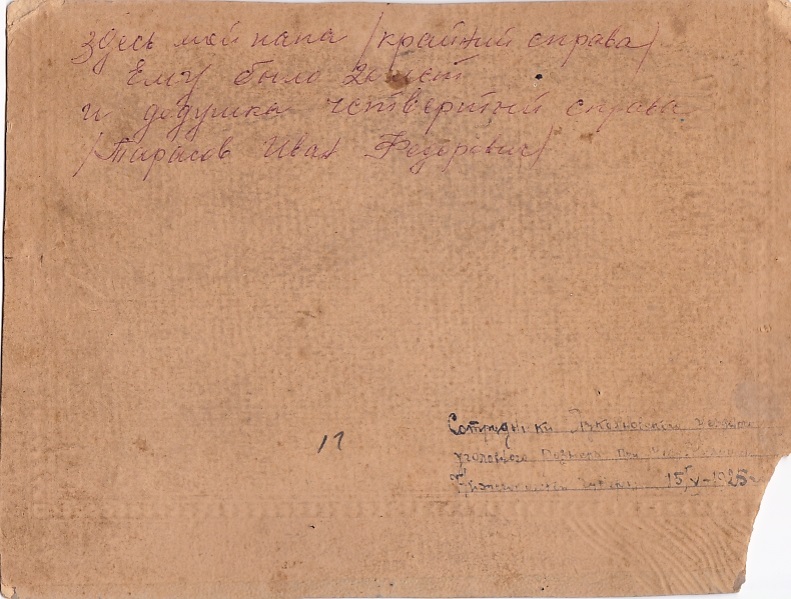 Здесь мой папа /крайний справа/
Ему было 20 лет
и дедушка четвертый справа
/Тарасов Иван Федорович/
17
Сотрудники
уголовного розыска при
15/V-1925